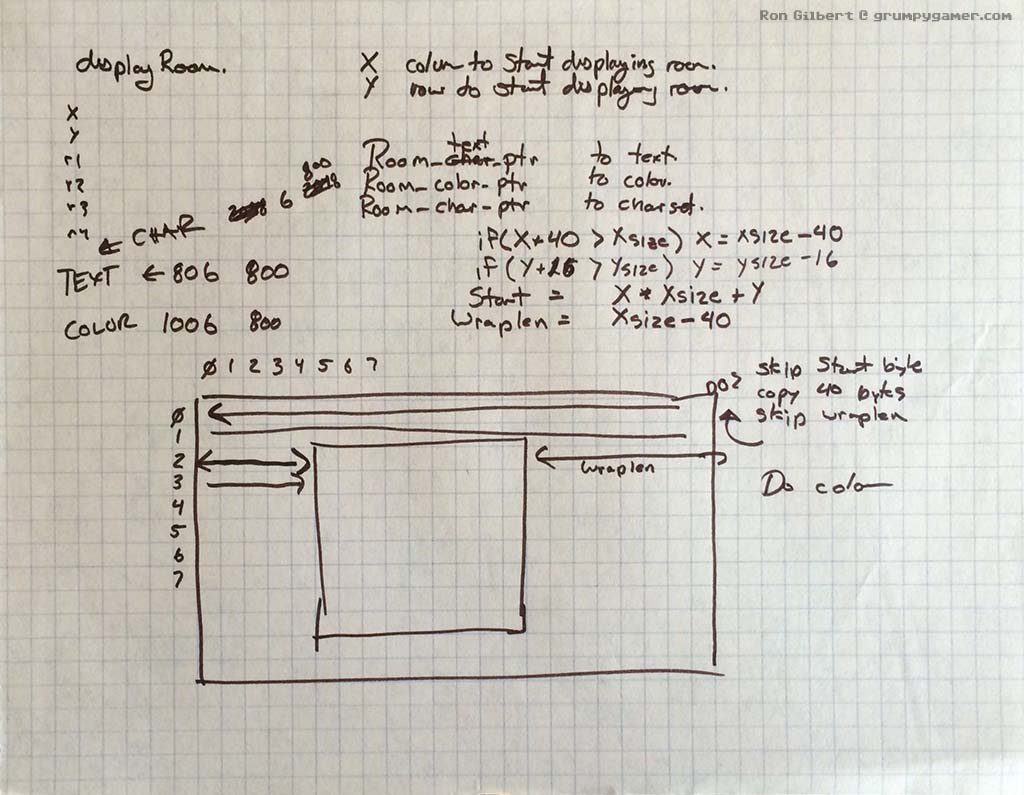 Ron Gilbert @ grumpygamer.com
displayRoom.
X colum to Start displaying room.
Y row to start displaying room.
X
Y
r1
r2
r3
r4
text
Room_char_ptr to text
Room_color_ptr to color.
Room_char_ptr to charset.
← CHAR 6 800
TEXT ← 806 800
COLOR 1006 800
if(X+40 > Xsize) X = Xsize-40
if(Y+16 > Ysize) Y = Ysize-16
Start = X * Xsize + Y
Wraplen = Xsize-40
0 1 2 3 4 5 6 7
0
1
2
3
4
5
6
7
wraplen
DO?
skip Start byte
copy 40 bytes
skip wraplen
Do color